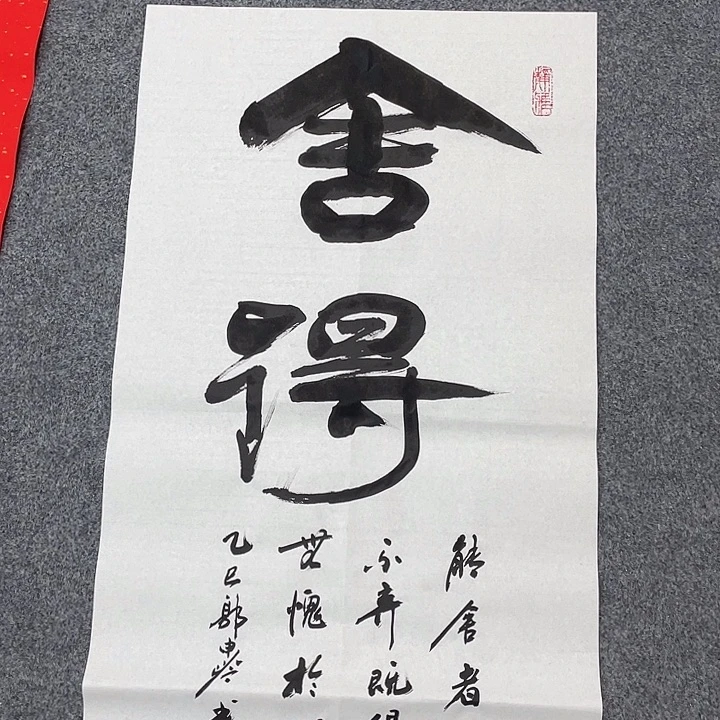 舍得
能舍者
不弃既得
无愧於
乙巳郭中